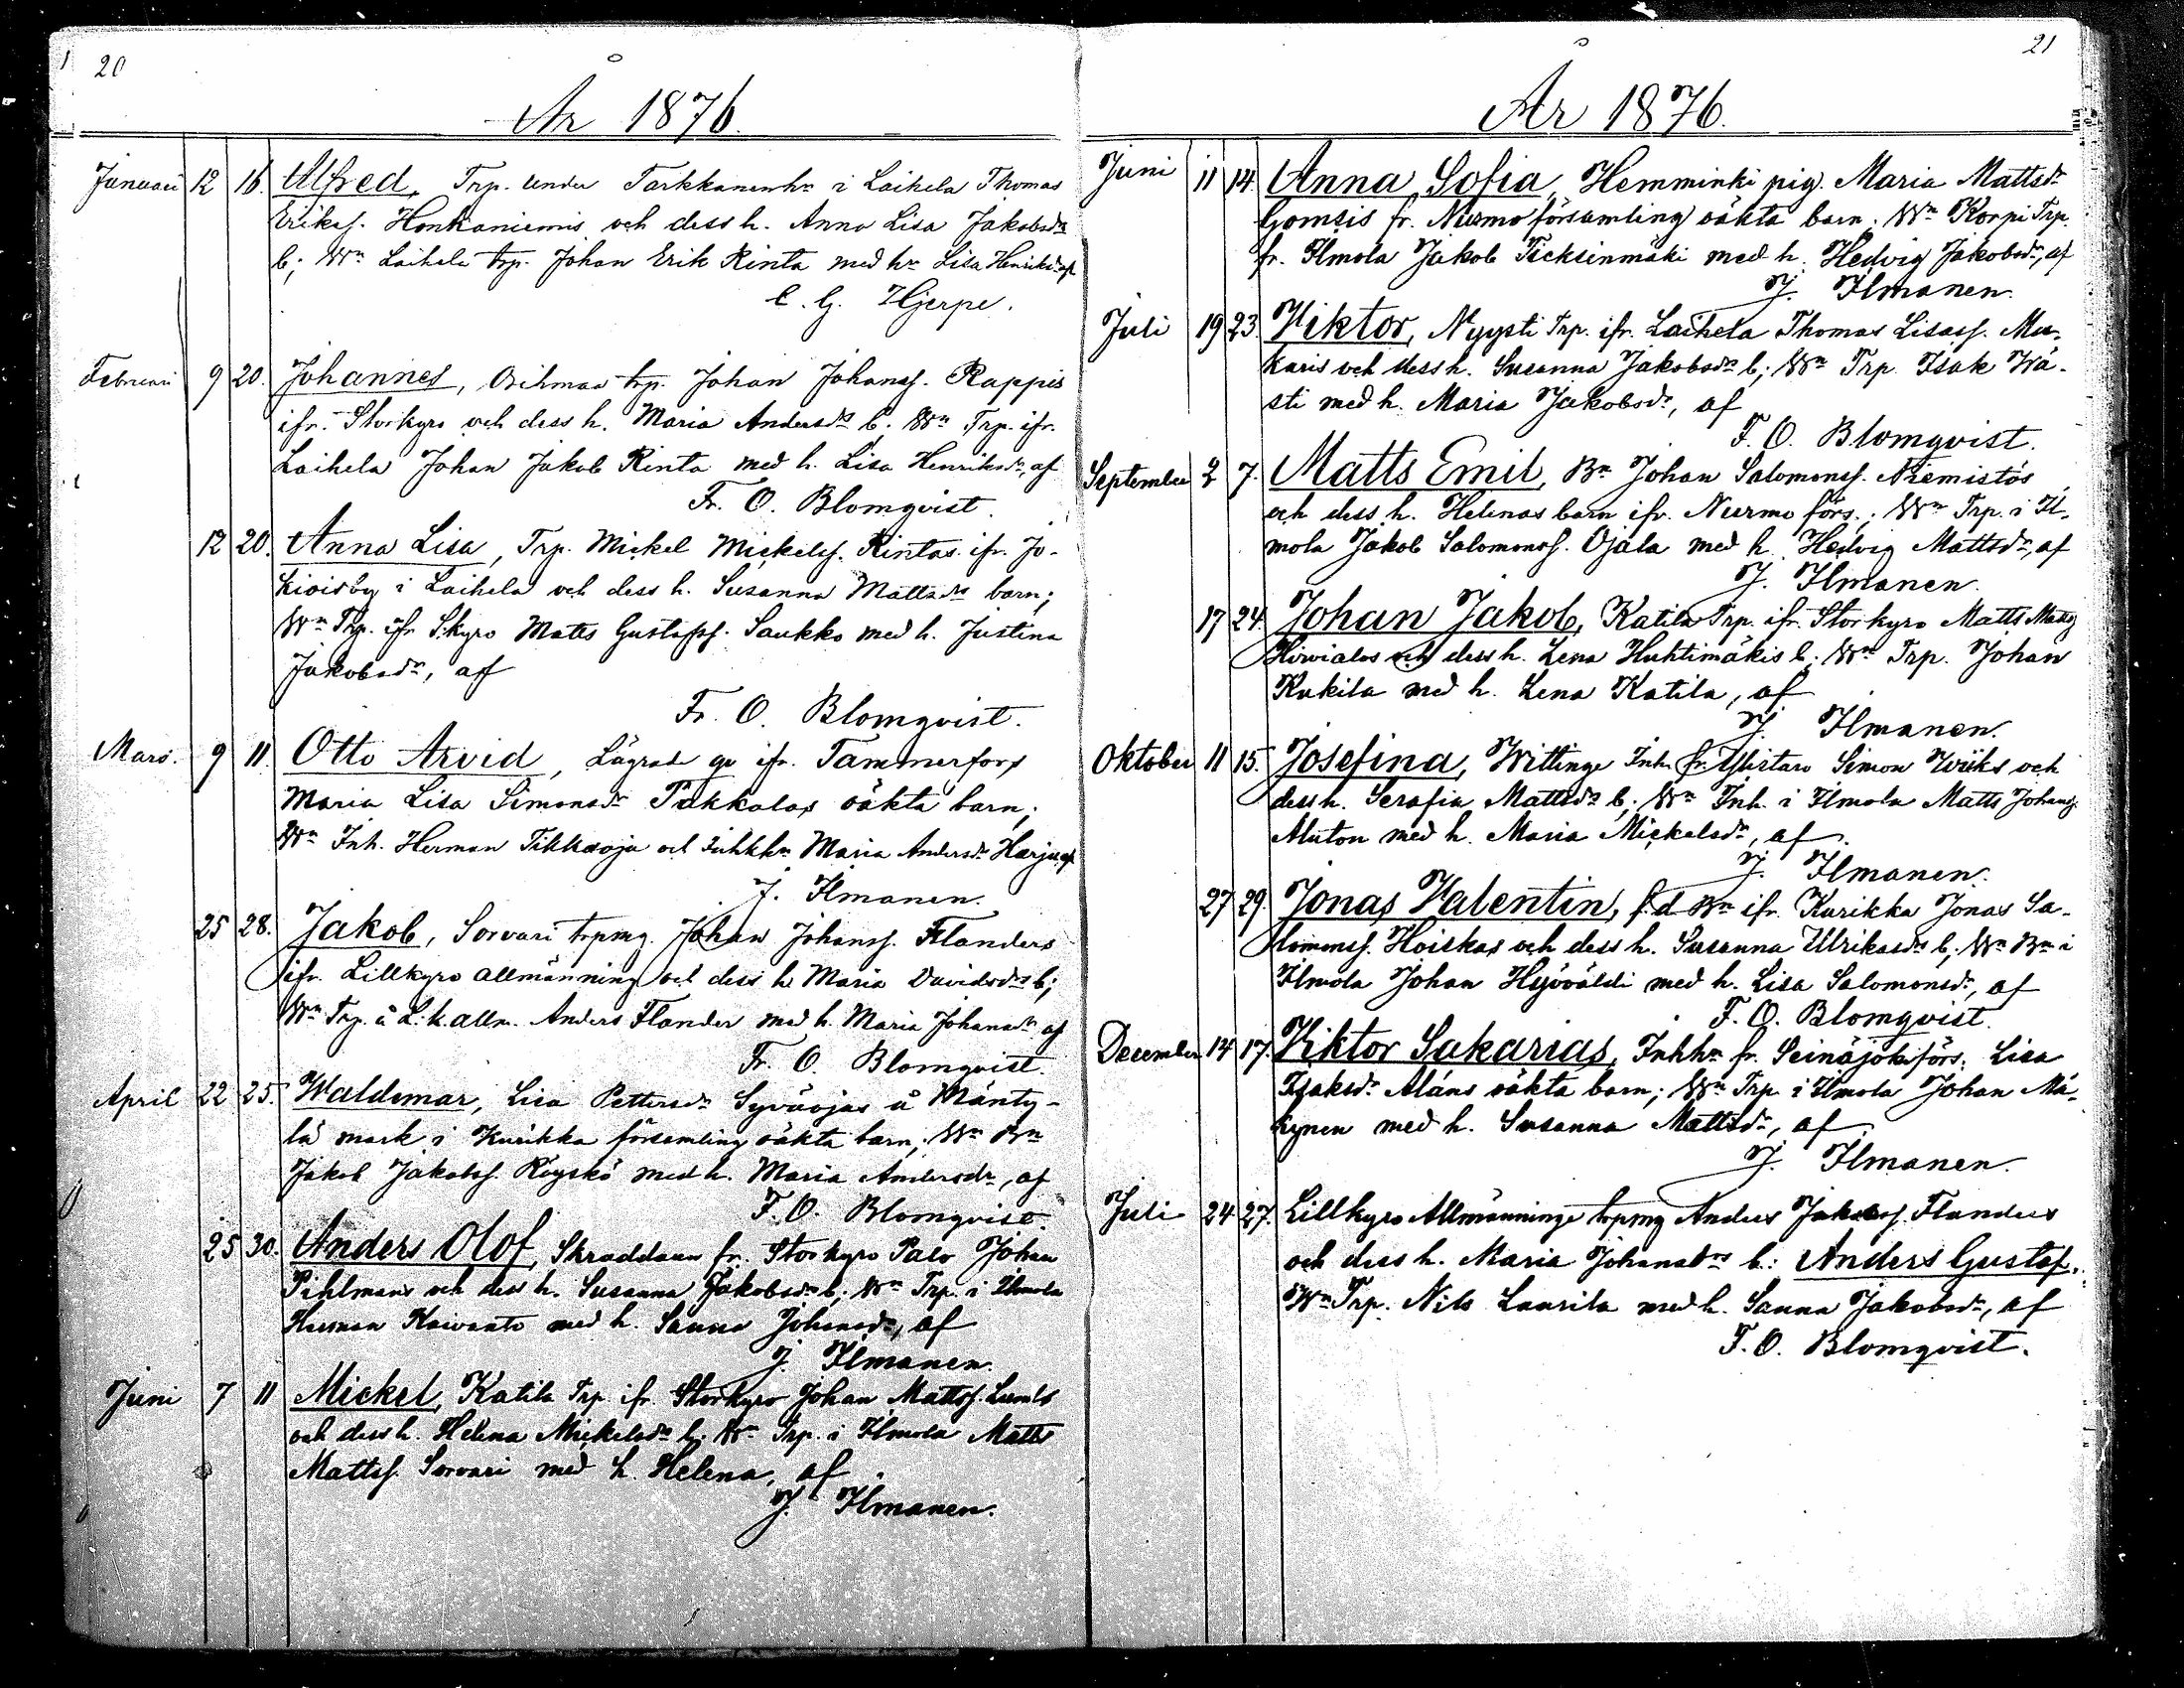 20
År 1876.
Januari 12 16. Alfred, Trp. under Tarkkanen hn i Laihela Thomas
Eriks. Honkaniemis och dess h. Anna Lisa Jakobsdrs
b; Wn Laihela trp. Johan Erik Rinta med hn Lisa Henriksdr af
C. G. Hjerpe.
Februari 9 20. Johannes, Orihmaa trp. Johan Johanss. Rappis
ifr. Storkyro och dess h. Maria Andersdrs b. Wn Trp. ifr.
Laihela Johan Jakob Rinta med h. Lisa Henriksdr, af
Fr. O. Blomqvist.
12 20. Anna Lisa, Trp. Mickel Mickelss. Rintas ifr. Jo-
kioisby i Laihela och dess h. Susanna Mattsdrs barn;
Wn Trp. ifr S.kyro Matts Gustafss. Saukko med h. Justina
Jakobsdr, af
Fr. O. Blomqvist.
Mars. 9 11. Otto Arvid, Lägrad qv ifr. Tammerfors
Maria Lisa Simonsdr Pukkalas oäkta barn;
Wn Inh. Herman Tikkaoja och Inhhn Maria Andersdr Harju, af
J. Ilmanen.
25 28. Jakob, Sorvari trpmg. Johan Johanss. Flanders
ifr. Lillkyro allmänning och dess h Maria Davidsdrs b;
Wn Trp. å L:k. allm. Anders Flander med h. Maria Johansdr af
Fr. O. Blomqvist.
April 22 25. Waldemar, Lisa Pettersdr Syväojas å Mänty-
lä mark i Kurikka församling oäkta barn; Wn Bn
Jakob Jakobss. Röyskö med h. Maria Andersdr, af
F. O. Blomqvist.
25 30. Anders Olof, Skraddaren fr. Storkyro Palo Johan
Pihlmans och dess h. Susanna Jakobsdrs b; Wn Trp. i Ilmola
Herman Koivanto med h. Sanna Johansdr, af
J. Ilmanen.
Juni 7 11 Mickel, Katila Trp. ifr. Storkyro Johan Mattss. Lumls
och dess h. Helena Mickelsdrs b. Wn Trp. i Ilmola Matts
Mattss. Sorvari med h. Helena, af
J. Ilmanen.
21
År 1876.
Juni 11 14. Anna Sofia, Hemminki pig. Maria Mattsdr
Gomsis fr. Nurmo församling oäkta barn; Wn Korpi Trp.
fr. Ilmola Jakob Ticksinmäki med h. Hedvig Jakobsdr, af
J. Ilmanen.
Juli 19 23. Viktor, Nyysti Trp. ifr. Laihela Thomas Lisass. Mu-
karis och dess h. Susanna Jakobsdrs b; Wn Trp. Isak Wä-
sti med h. Maria Jakobsdr, af
F. O. Blomqvist.
September 2 7. Matts Emil, Bn Johan Salomonss. Niemistös
och dess h. Helenas barn ifr. Nurmo förs.; Wn Trp. i Il-
mola Jakob Salomonss. Ojala med h. Hedvig Mattsdr, af
J. Ilmanen.
17 24. Johan Jakob, Katila Trp. ifr. Storkyro Matts Matts
Hirvialos och dess h. Lena Huhtimäkis b; Wn Trp. Johan
Kukila med h. Lena Katila, af
J. Ilmanen.
Oktober 11 15. Josefina, Wittinge Inh. fr. Ylistaro Simon Wiiks och
dess h. Serafia Mattsdrs b; Wn Inh. i Ilmola Matts Johanss.
Aluton med h. Maria Mickelsdr, af
J. Ilmanen.
27 29. Jonas Valentin, f.d Bn ifr. Kurikka Jonas Sa-
lomonss. Hoiskas och dess h. Susanna Ulrikasdrs b; Wn Bn i
Ilmola Johan Hyöväldi med h. Lisa Salomonsdr, af
F. O. Blomqvist.
December 14 17. Viktor Sakarias, Inhhn fr. Seinäjoki förs. Lisa
Isaksdr Aläns oäkta barn; Wn Trp. i Ilmola Johan Mä-
kynen med h. Susanna Mattsdr, af
J. Ilmanen.
Juli 24 27. Lillkyro Allmännings trpmg Anders Jakobss. Flanders
och dess h. Maria Johansdrs b: Anders Gustaf.
Wn Trp. Nils Laurila med h. Sanna Jakobsdr, af
F. O. Blomqvist.